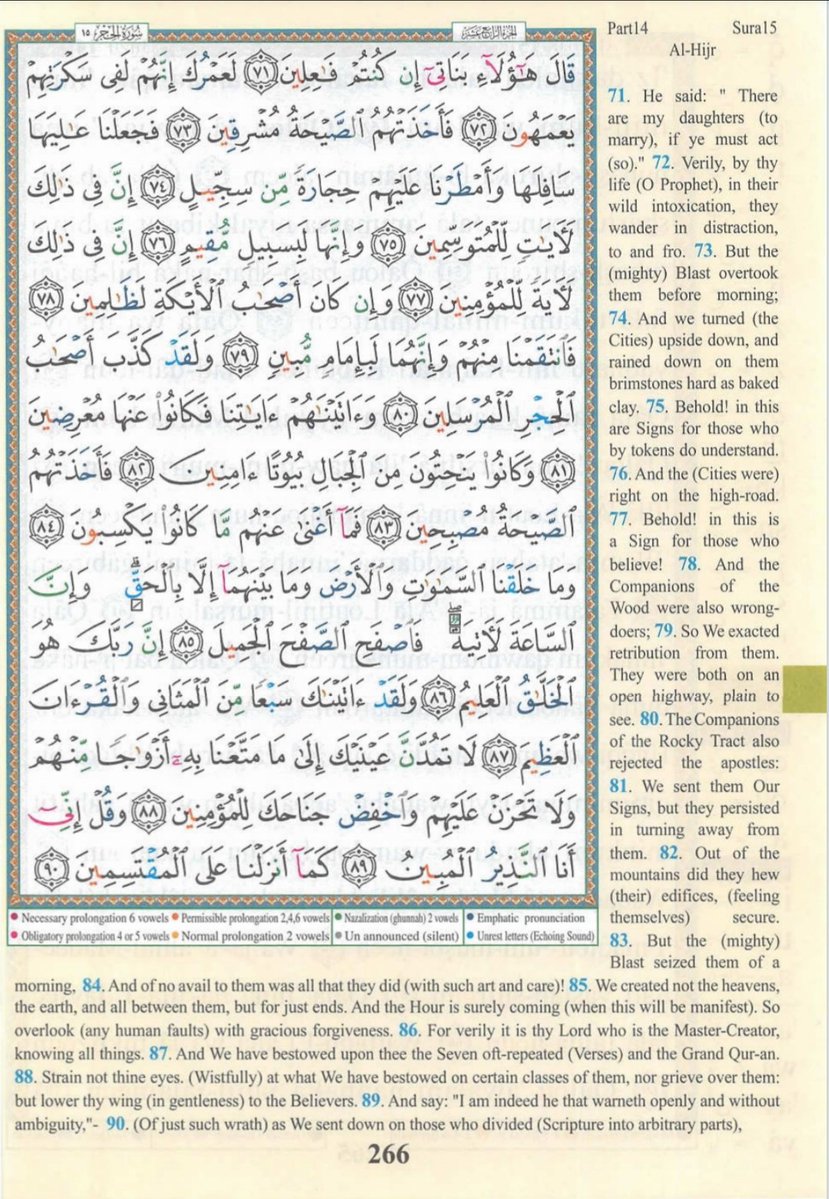 سُورَةُ الحِجر ١٥
الجزء الرابع عشر
قَالَ هَٰٓؤُلَآءِ بَنَاتِىٓ إِن كُنتُمْ فَٰعِلِينَ ٧١ لَعَمْرُكَ إِنَّهُمْ لَفِى سَكْرَتِهِمْ
يَعْمَهُونَ ٧٢ فَأَخَذَتْهُمُ ٱلصَّيْحَةُ مُشْرِقِينَ ٧٣ فَجَعَلْنَا عَٰلِيَهَا
سَافِلَهَا وَأَمْطَرْنَا عَلَيْهِمْ حِجَارَةً مِّن سِجِّيلٍ ٧٤ إِنَّ فِى ذَٰلِكَ
لَأَيَٰتٍ لِّلْمُتَوَسِّمِينَ ٧٥ وَإِنَّهَا لَبِسَبِيلٍ مُّقِيمٍ ٧٦ إِنَّ فِى ذَٰلِكَ
لَأَيَةً لِّلْمُؤْمِنِينَ ٧٧ وَإِن كَانَ أَصْحَٰبُ ٱلْأَيْكَةِ لَظَٰلِمِينَ ٧٨
فَٱنتَقَمْنَا مِنْهُمْ وَإِنَّهُمَا لَبِإِمَامٍ مُّبِينٍ ٧٩ وَلَقَدْ كَذَّبَ أَصْحَٰبُ
ٱلْحِجْرِ ٱلْمُرْسَلِينَ ٨٠ وَءَاتَيْنَٰهُمْ ءَايَٰتِنَا فَكَانُوا۟ عَنْهَا مُعْرِضِينَ
٨١ وَكَانُوا۟ يَنْحِتُونَ مِنَ ٱلْجِبَالِ بُيُوتًا ءَامِنِينَ ٨٢ فَأَخَذَتْهُمُ
ٱلصَّيْحَةُ مُصْبِحِينَ ٨٣ فَمَآ أَغْنَىٰ عَنْهُم مَّا كَانُوا۟ يَكْسِبُونَ ٨٤
وَمَا خَلَقْنَا ٱلسَّمَٰوَٰتِ وَٱلْأَرْضَ وَمَا بَيْنَهُمَآ إِلَّا بِٱلْحَقِّ ۗ وَإِنَّ
ٱلسَّاعَةَ لَأَتِيَةٌ ۖ فَٱصْفَحِ ٱلصَّفْحَ ٱلْجَمِيلَ ٨٥ إِنَّ رَبَّكَ هُوَ
ٱلْخَلَّٰقُ ٱلْعَلِيمُ ٨٦ وَلَقَدْ ءَاتَيْنَٰكَ سَبْعًا مِّنَ ٱلْمَثَانِى وَٱلْقُرْءَانَ
ٱلْعَظِيمَ ٨٧ لَا تَمُدَّنَّ عَيْنَيْكَ إِلَىٰ مَا مَتَّعْنَا بِهِۦٓ أَزْوَٰجًا مِّنْهُمْ
وَلَا تَحْزَنْ عَلَيْهِمْ وَٱخْفِضْ جَنَاحَكَ لِلْمُؤْمِنِينَ ٨٨ وَقُلْ إِنِّىٓ
أَنَا ٱلنَّذِيرُ ٱلْمُبِينُ ٨٩ كَمَآ أَنزَلْنَا عَلَى ٱلْمُقْتَسِمِينَ ٩٠
Necessary prolongation 6 vowels Permissible prolongation 2,4,6 vowels Nazalization (ghunnah) 2 vowels Emphatic pronunciation
Obligatory prolongation 4 or 5 vowels Normal prolongation 2 vowels Un announced (silent) Unrest letters (Echoing Sound)
Part14 Sura15
Al-Hijr
71. He said: " There
are my daughters (to
marry), if ye must act
(so)." 72. Verily, by thy
life (O Prophet), in their
wild intoxication, they
wander in distraction,
to and fro. 73. But the
(mighty) Blast overtook
them before morning;
74. And we turned (the
Cities) upside down, and
rained down on them
brimstones hard as baked
clay. 75. Behold! in this
are Signs for those who
by tokens do understand.
76. And the (Cities were)
right on the high-road.
77. Behold! in this is
a Sign for those who
believe! 78. And the
Companions of the
Wood were also wrong-
doers; 79. So We exacted
retribution from them.
They were both on an
open highway, plain to
see. 80. The Companions
of the Rocky Tract also
rejected the apostles:
81. We sent them Our
Signs, but they persisted
in turning away from
them. 82. Out of the
mountains did they hew
(their) edifices, (feeling
themselves) secure.
83. But the (mighty)
Blast seized them of a
morning, 84. And of no avail to them was all that they did (with such art and care)! 85. We created not the heavens,
the earth, and all between them, but for just ends. And the Hour is surely coming (when this will be manifest). So
overlook (any human faults) with gracious forgiveness. 86. For verily it is thy Lord who is the Master-Creator,
knowing all things. 87. And We have bestowed upon thee the Seven oft-repeated (Verses) and the Grand Qur-an.
88. Strain not thine eyes. (Wistfully) at what We have bestowed on certain classes of them, nor grieve over them:
but lower thy wing (in gentleness) to the Believers. 89. And say: "I am indeed he that warneth openly and without
ambiguity,"- 90. (Of just such wrath) as We sent down on those who divided (Scripture into arbitrary parts),
266